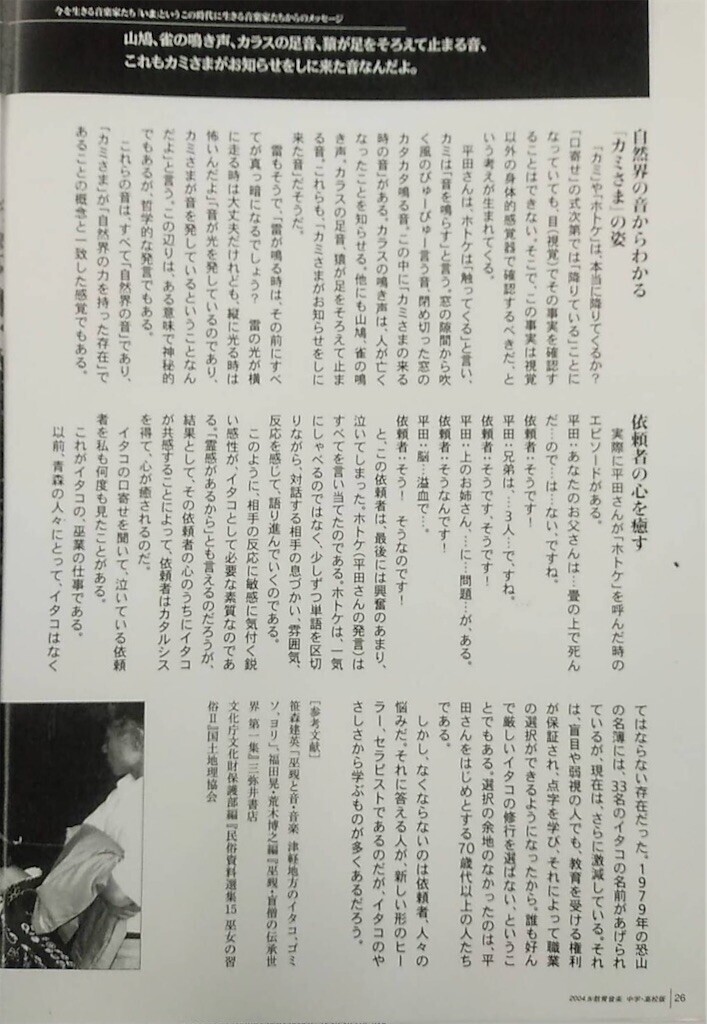 今を生きる音楽家たち「いま」というこの時代に生きる音楽家たちからのメッセージ
山鳩、雀の鳴き声、カラスの足音、猿が足をそろえて止まる音、
これもカミさまがお知らせをしに来た音なんだよ。
自然界の音からわかる
「カミさま」の姿
「カミ」や「ホトケ」は、本当に降りてくるか?
「口寄せ」の式次第では「降りている」ことに
なっていても、目(視覚)でその事実を確認す
ることはできない。そこで、この事実は視覚
以外の身体的感覚器で確認するべきだ、と
いう考えが生まれてくる。
平田さんは、ホトケは「触ってくる」と言い、
カミは「音を鳴らす」と言う。窓の隙間から吹
く風のびゅーびゅー言う音、閉め切った窓の
カタカタ鳴る音。この中に「カミさまの来る
時の音」がある。カラスの鳴き声は、人が亡く
なったことを知らせる。他にも山鳩、雀の鳴
き声、カラスの足音、猿が足をそろえて止ま
る音。これらも、「カミさまがお知らせをしに
来た音」だそうだ。
雷もそうで、「雷が鳴る時は、その前にすべ
てが真っ暗になるでしょう? 雷の光が横
に走る時は大丈夫だけれども、縦に光る時は
怖いんだよ」「音が光を発しているのであり、
カミさまが音を発しているということなん
だよ」と言う。この辺りは、ある意味で神秘的
でもあるが、哲学的な発言でもある。
これらの音は、すべて「自然界の音」であり、
「カミさま」が「自然界の力を持った存在」で
あることの概念と一致した感覚でもある。
依頼者の心を癒す
実際に平田さんが「ホトケ」を呼んだ時の
エピソードがある。
平田:あなたのお父さんは…畳の上で死ん
だ…ので…は…ない、ですね。
依頼者:そうです!
平田:兄弟は、…3人…で、すね。
依頼者:そうです、そうです!
平田:上のお姉さん、…に…問題…が、ある。
依頼者:そうなんです!
平田:脳…溢血で…。
依頼者:そう! そうなのです!
と、この依頼者は、最後には興奮のあまり、
泣いてしまった。ホトケ(平田さんの発言)は
すべてを言い当てたのである。ホトケは、一気
にしゃべるのではなく、少しずつ単語を区切
りながら、対話する相手の息づかい、雰囲気、
反応を感じて、語り進んでいくのである。
このように、相手の反応に敏感に気付く鋭
い感性が、イタコとして必要な素質なのであ
る。「霊感があるから」とも言えるのだろうが、
結果として、その依頼者の心のうちにイタコ
が共感することによって、依頼者はカタルシス
を得て、心が癒されるのだ。
イタコの口寄せを聞いて、泣いている依頼
者を私も何度も見たことがある。
これがイタコの、巫業の仕事である。
以前、青森の人々にとって、イタコはなく
てはならない存在だった。1979年の恐山
の名簿には、33名のイタコの名前があげられ
ているが、現在は、さらに激減している。それ
は、盲目や弱視の人でも、教育を受ける権利
が保証され、点字を学び、それによって職業
の選択ができるようになったから。誰も好ん
で厳しいイタコの修行を選ばない、というこ
とでもある。選択の余地のなかったのは、平
田さんをはじめとする70歳代以上の人たち
である。
しかし、なくならないのは依頼者、人々の
悩みだ。それに答える人が、新しい形のヒー
ラー、セラピストであるのだが、イタコのや
さしさから学ぶものが多くあるだろう。
[参考文献]
笹森建英「巫覡と音・音楽 津軽地方のイタコ、ゴミ
ソ、ヨリ」、福田晃・荒木博之編『巫覡・盲僧の伝承世
界 第一集』三弥井書店
文化庁文化財保護部編『民俗資料選集15 巫女の習
俗Ⅱ』国土地理協会
2004.9/教育音楽 中学・高校版 26